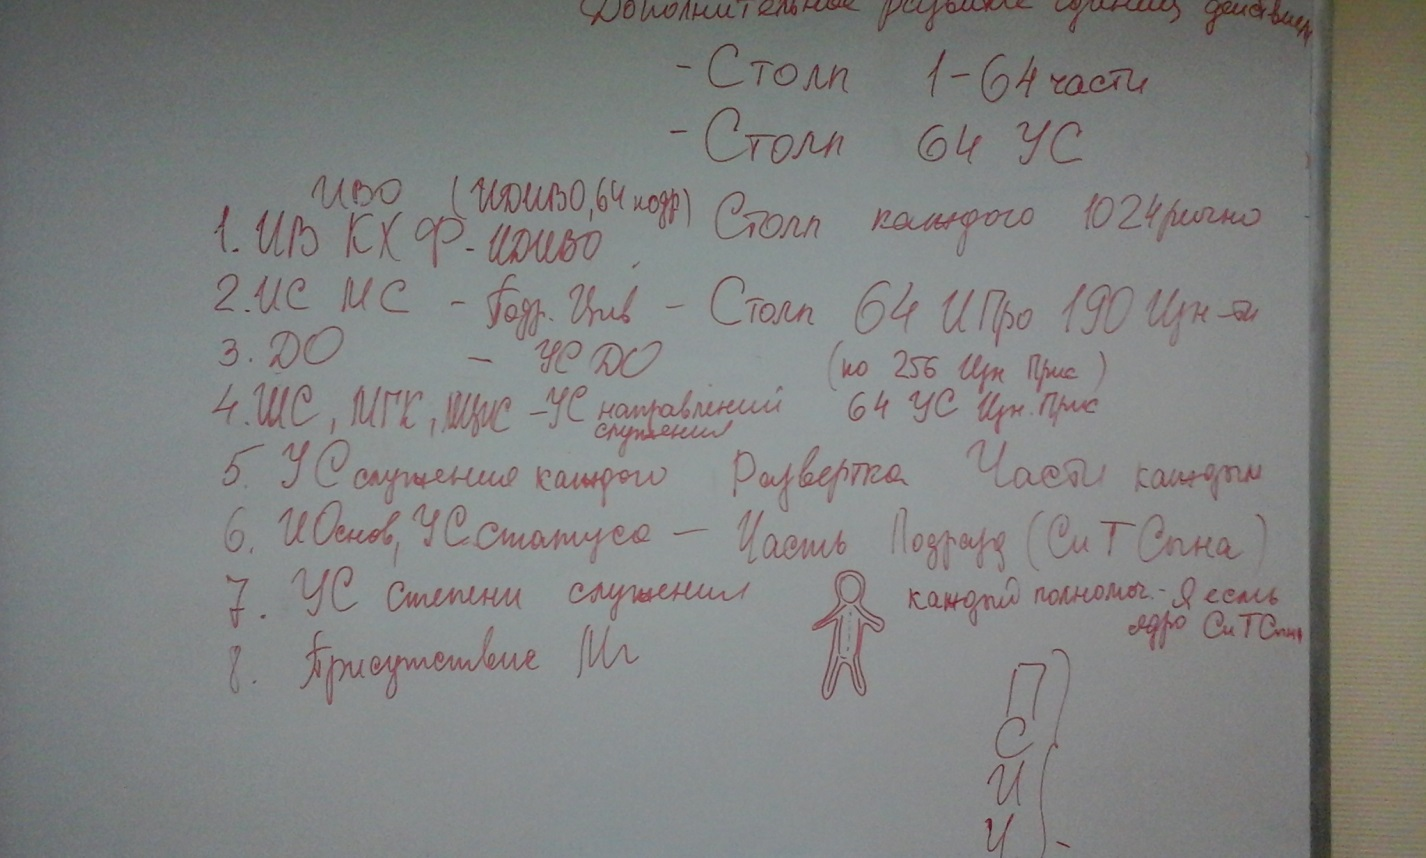 Дополнительное развитие единиц действием
- Столп 1-64 части
- Столп 64 УС
ИВО (ИДИВО, 64 подр)
1. ИВ КХ Ф - ИДИВО Столп каждого 1024рично
2. ИС МС - Подр. Цив - Столп 64 ИПро 190 Цин-ти
3. ДО - УС ДО (по 256 Цин Прис)
4. ШС, МГК, МЦИС - УС направлений служения 64 УС Цин. Прис
5. УС служения каждого Развертка Части каждым
6. ИОснов, УС статуса - Часть Подразд (СиТСпна)
7. УС степени служения каждый полномоч. - Я есмь
ядро СиТСпна
8. Присутствие Мг
П
С
И
У -